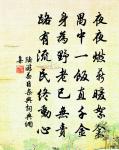 夜夜燃薪暖絮衾
禺中一飯直千金
身為野老已無責
路有流民終動心
陸游春日杂興詞典網
集